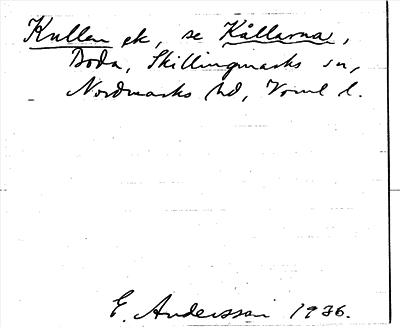 Kullen ek, se Kållarna,
Boda, Skillingmarks sn,
Nordmarks hd, Värml l.
E. Andersson 1936.